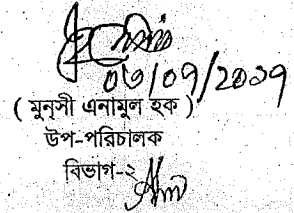 ০৩/০৭/২০১৭
( মুন্সী এনামুল হক )
উপ-পরিচালক
বিভাগ-২